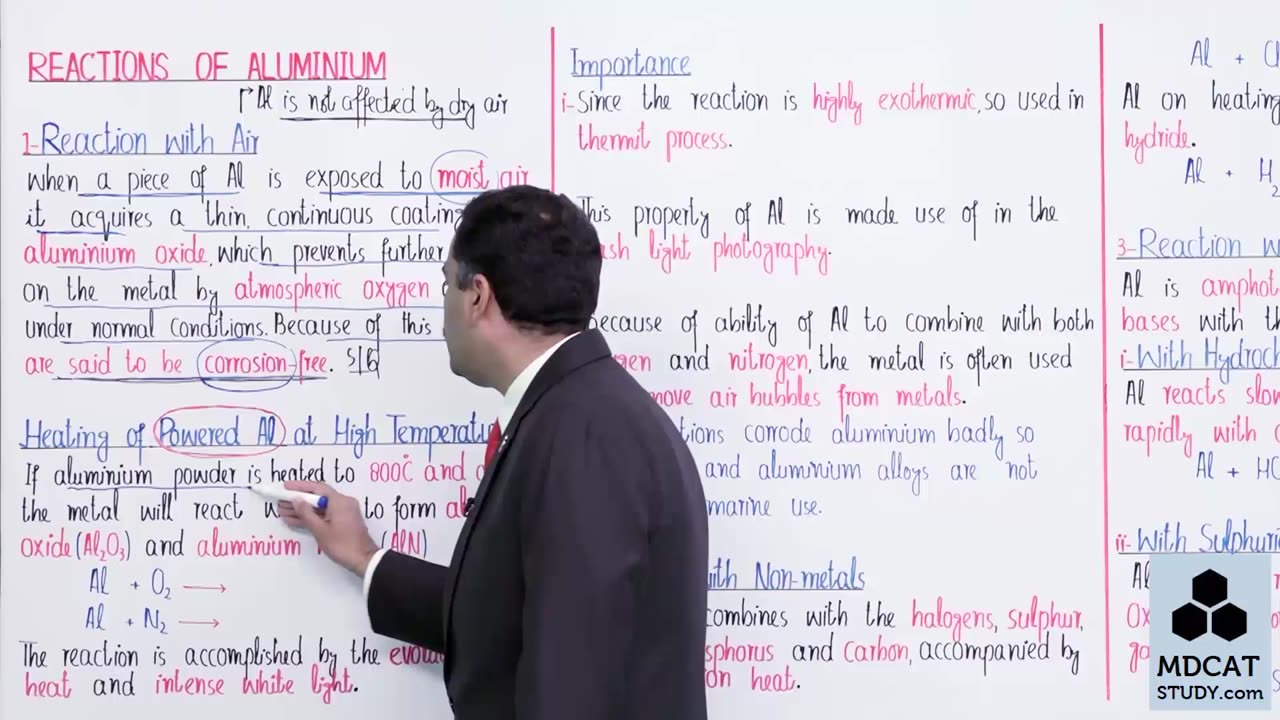 REACTIONS OF ALUMINIUM
Al is not affected by dry air
1-Reaction with Air
When a piece of Al is exposed to moist air
it acquires a thin, continuous coating
aluminium oxide, which prevents further
on the metal by atmospheric oxygen
under normal conditions. Because of this
are said to be corrosion-free. S16
Heating of Powered Al at High
If aluminium powder is heated to 800°C and
the metal will react to form
oxide (Al2O3) and aluminium (AlN)
Al + O2 →
Al + N2 →
The reaction is accomplished by the
heat and intense white light.
Importance
i- Since the reaction is highly exothermic, so used in
thermit process.
This property of Al is made use of in the
light photography.
because of ability of Al to combine with both
and nitrogen, the metal is often used
air bubbles from metals.
corrode aluminium badly so
and aluminium alloys are not
marine use.
with Non-metals
combines with the halogens, sulphur,
and carbon, accompanied by
heat.
Al +
Al on heating
hydride.
Al + H2
3-Reaction
Al is
bases with
i-With
Al reacts
rapidly with
Al +
ii-With
Al
MDCAT
STUDY.com